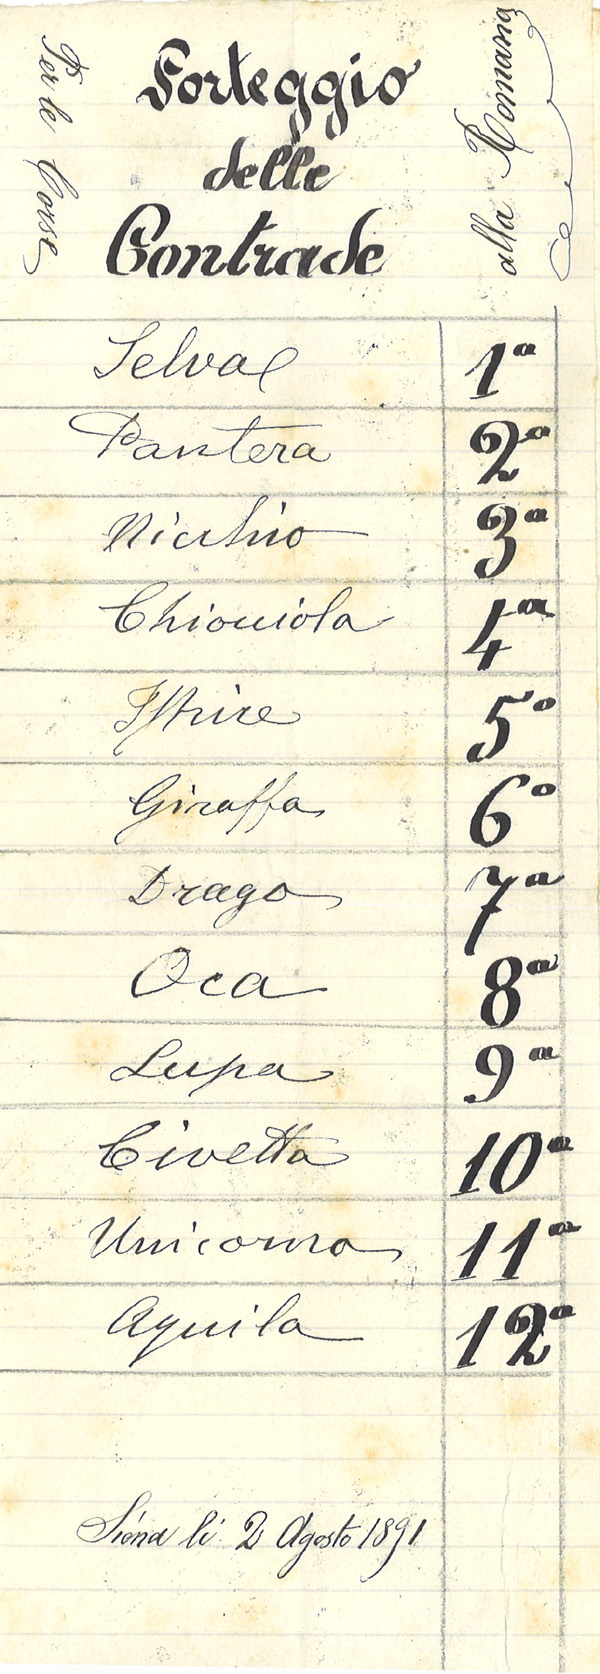 Per le Corse
Sorteggio
delle
Contrade
alla Romana
Selva 1ª
Pantera 2ª
Nicchio 3ª
Chiocciola 4ª
Istrice 5º
Giraffa 6º
Drago 7ª
Oca 8ª
Lupa 9ª
Civetta 10ª
Unicorno 11ª
Aquila 12ª
Siena li 2 Agosto 1891